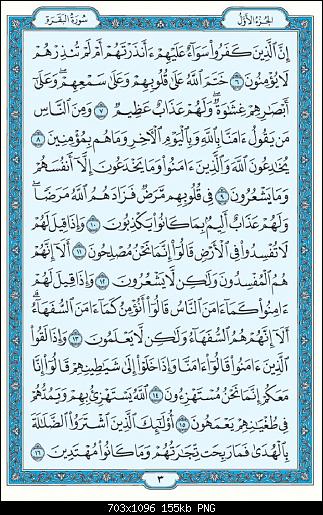 الجُزءُ الأَوَّلُ
سُورَةُ البَقَرَةِ
إِنَّ ٱلَّذِينَ كَفَرُواْ سَوَآءٌ عَلَيۡهِمۡ ءَأَنذَرۡتَهُمۡ أَمۡ لَمۡ تُنذِرۡهُمۡ
لَا يُؤۡمِنُونَ ٦ خَتَمَ ٱللَّهُ عَلَىٰ قُلُوبِهِمۡ وَعَلَىٰ سَمۡعِهِمۡۖ وَعَلَىٰٓ
أَبۡصَٰرِهِمۡ غِشَٰوَةٞۖ وَلَهُمۡ عَذَابٌ عَظِيمٞ ٧ وَمِنَ ٱلنَّاسِ
مَن يَقُولُ ءَامَنَّا بِٱللَّهِ وَبِٱلۡيَوۡمِ ٱلۡأٓخِرِ وَمَا هُم بِمُؤۡمِنِينَ ٨
يُخَٰدِعُونَ ٱللَّهَ وَٱلَّذِينَ ءَامَنُواْ وَمَا يَخۡدَعُونَ إِلَّآ أَنفُسَهُمۡ
وَمَا يَشۡعُرُونَ ٩ فِي قُلُوبِهِم مَّرَضٞ فَزَادَهُمُ ٱللَّهُ مَرَضٗاۖ
وَلَهُمۡ عَذَابٌ أَلِيمُۢ بِمَا كَانُواْ يَكۡذِبُونَ ١٠ وَإِذَا قِيلَ لَهُمۡ
لَا تُفۡسِدُواْ فِي ٱلۡأَرۡضِ قَالُوٓاْ إِنَّمَا نَحۡنُ مُصۡلِحُونَ ١١ أَلَآ إِنَّهُمۡ
هُمُ ٱلۡمُفۡسِدُونَ وَلَٰكِن لَّا يَشۡعُرُونَ ١٢ وَإِذَا قِيلَ لَهُمۡ
ءَامِنُواْ كَمَآ ءَامَنَ ٱلنَّاسُ قَالُوٓاْ أَنُؤۡمِنُ كَمَآ ءَامَنَ ٱلسُّفَهَآءُۗ
أَلَآ إِنَّهُمۡ هُمُ ٱلسُّفَهَآءُ وَلَٰكِن لَّا يَعۡلَمُونَ ١٣ وَإِذَا لَقُواْ
ٱلَّذِينَ ءَامَنُواْ قَالُوٓاْ ءَامَنَّا وَإِذَا خَلَوۡاْ إِلَىٰ شَيَٰطِينِهِمۡ قَالُوٓاْ إِنَّا
مَعَكُمۡ إِنَّمَا نَحۡنُ مُسۡتَهۡزِءُونَ ١٤ ٱللَّهُ يَسۡتَهۡزِئُ بِهِمۡ وَيَمُدُّهُمۡ
فِي طُغۡيَٰنِهِمۡ يَعۡمَهُونَ ١٥ أُوْلَٰٓئِكَ ٱلَّذِينَ ٱشۡتَرَوُاْ ٱلضَّلَٰلَةَ
بِٱلۡهُدَىٰ فَمَا رَبِحَت تِّجَٰرَتُهُمۡ وَمَا كَانُواْ مُهۡتَدِينَ ١٦
٣
703x1096 155kb PNG